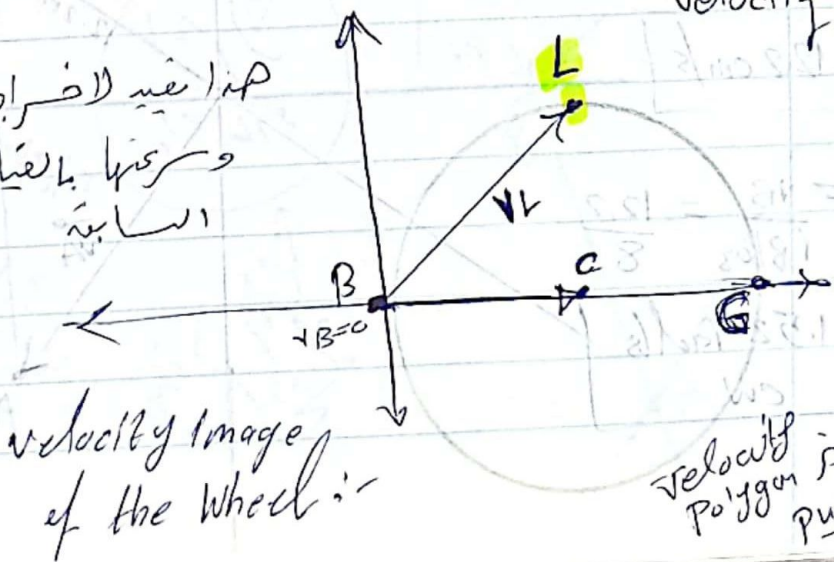 velocity
122 cm/s
هذا نفيد لاخراج
وسرعتها بالقياس
السابقة
L
VL
B
VB=0
C
G
= 122
8
velocity Image
of the Wheel :-
velocity
Polygon is